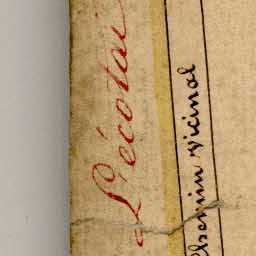 L'écotai
Chemin vicinal